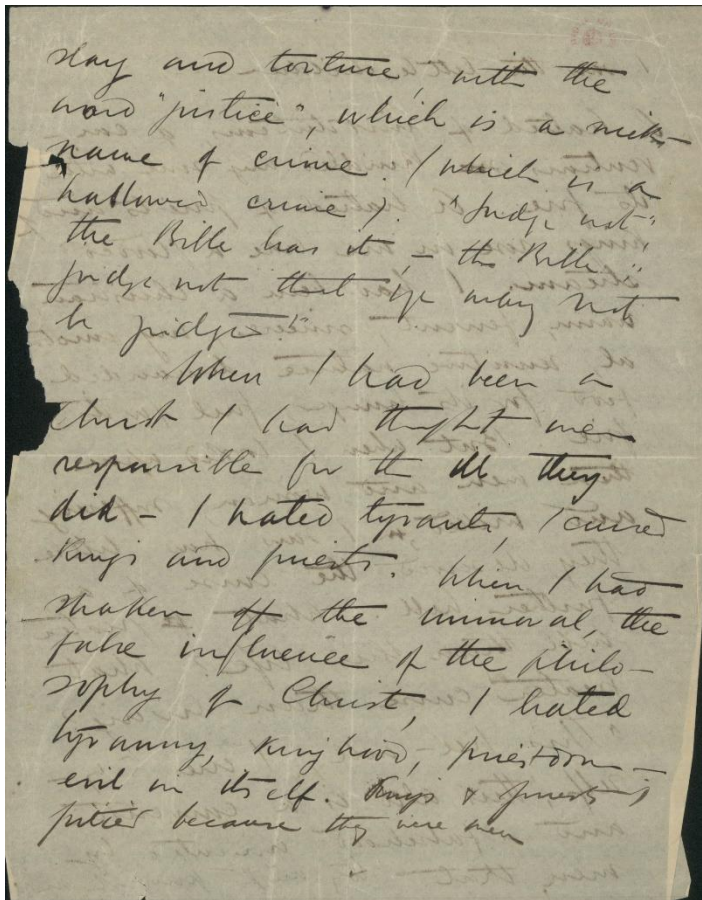 slay and torture, with the
word "justice", which is a nick-
name of crime (which is a
hallowed crime). "Judge not"
the Bible has it, — the Bible:
"Judge not that ye may not
be judged!"
When I had been a
Christ I had thought men
responsible for the ill they
did — I hated tyrants, I cursed
Kings and priests. When I had
shaken off the immoral, the
false influence of the philo-
sophy of Christ, I hated
tyranny, kinghood, priestdom —
evil in itself. Kings & priests I
pitied because they were men